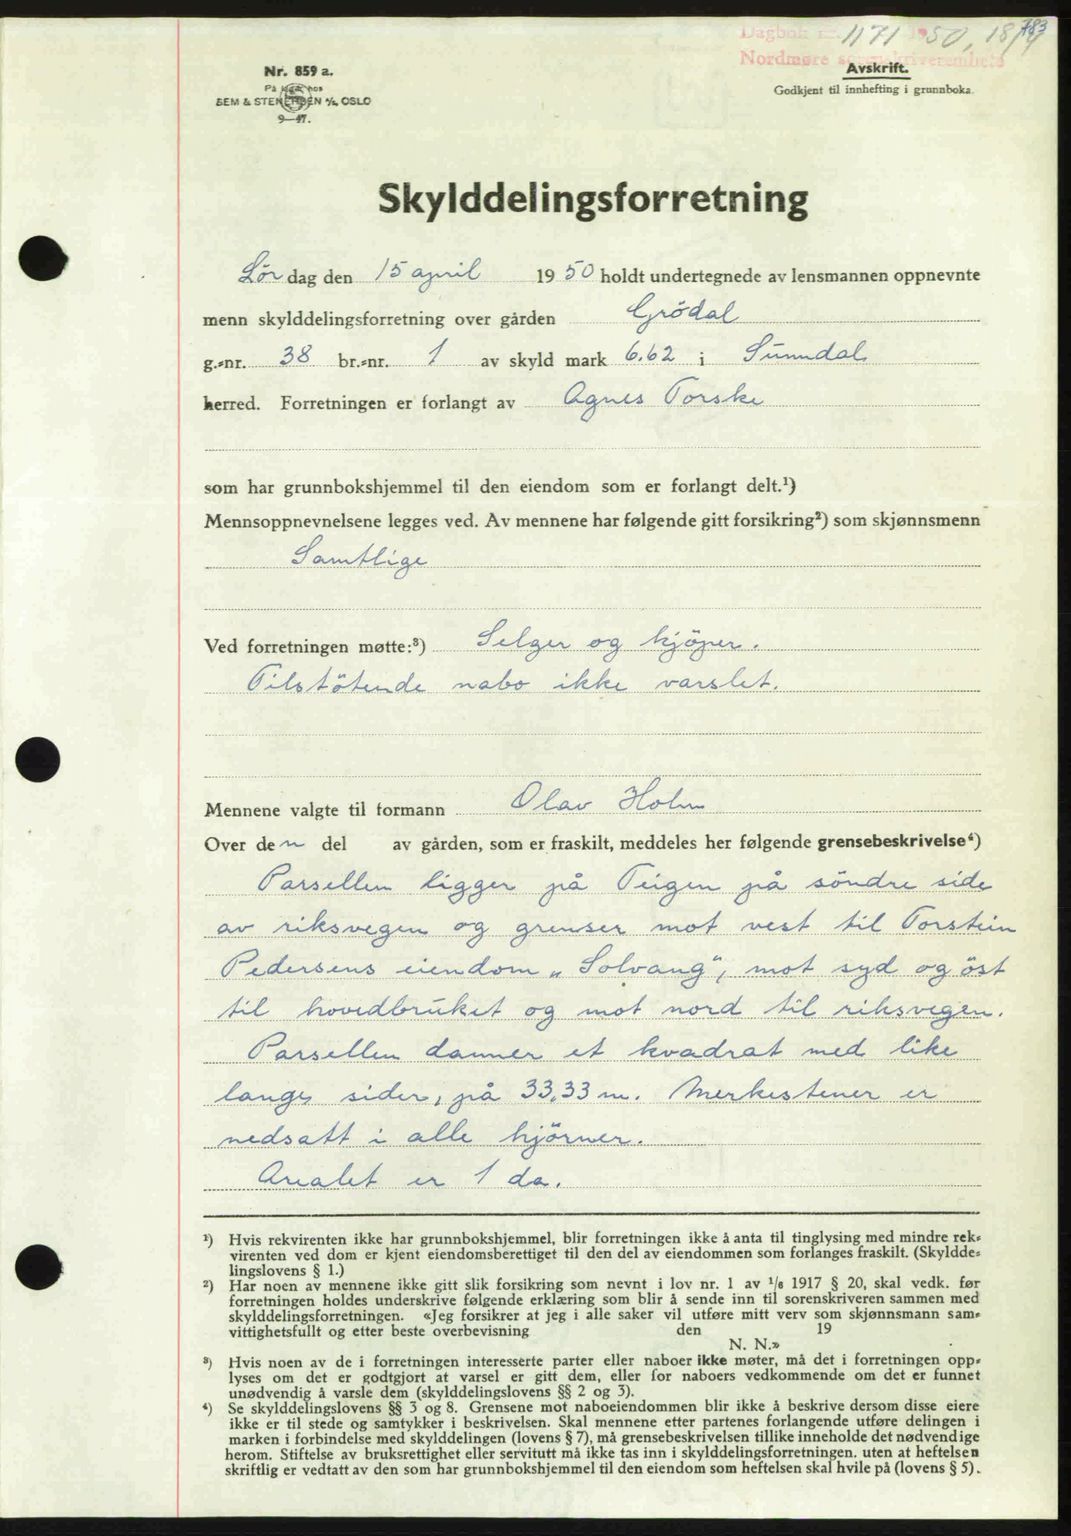 783
Dagbok nr. 1171 1950, 18/4
Nordmøre sorenskriverembete
Nr. 859 a.
På lager hos
SEM & STENERSEN A/S, OSLO
9—47.
Avskrift.
Godkjent til innhefting i grunnboka.
Skylddelingsforretning
Lör dag den 15 april 1950 holdt undertegnede av lensmannen oppnevnte
menn skylddelingsforretning over gården Grödal
g.-nr. 38 br.-nr. 1 av skyld mark 6.62 i Sunndal
herred. Forretningen er forlangt av Agnes Torske
som har grunnbokshjemmel til den eiendom som er forlangt delt.¹)
Mennsoppnevnelsene legges ved. Av mennene har følgende gitt forsikring²) som skjønnsmenn
Samtlige
Ved forretningen møtte:³) Selger og kjöper.
Tilstötende nabo ikke varslet.
Mennene valgte til formann Olav Holm
Over den del av gården, som er fraskilt, meddeles her følgende grensebeskrivelse⁴)
Parsellen ligger på Teigen på söndre side
av riksvegen og grenser mot vest til Torstein
Pedersens eiendom „Solvang“, mot syd og öst
til hovedbruket og mot nord til riksvegen.
Parsellen danner et kvadrat med like
lange sider, på 33,33 m. Merkestener er
nedsatt i alle hjörner.
Arealet er 1 da.
¹) Hvis rekvirenten ikke har grunnbokshjemmel, blir forretningen ikke å anta til tinglysing med mindre rek-
virenten ved dom er kjent eiendomsberettiget til den del av eiendommen som forlanges fraskilt. (Skyldde-
lingslovens § 1.)
²) Har noen av mennene ikke gitt slik forsikring som nevnt i lov nr. 1 av 1/6 1917 § 20, skal vedk. før
forretningen holdes underskrive følgende erklæring som blir å sende inn til sorenskriveren sammen med
skylddelingsforretningen. «Jeg forsikrer at jeg i alle saker vil utføre mitt verv som skjønnsmann sam-
vittighetsfullt og etter beste overbevisning den 19
N. N.»
³) Hvis noen av de i forretningen interesserte parter eller naboer ikke møter, må det i forretningen opp-
lyses om det er godtgjort at varsel er gitt dem, eller for naboers vedkommende om det er funnet
unødvendig å varsle dem (skylddelingslovens §§ 2 og 3).
⁴) Se skylddelingslovens §§ 3 og 8. Grensene mot naboeiendommen blir ikke å beskrive dersom disse eiere
ikke er til stede og samtykker i beskrivelsen. Skal mennene etter partenes forlangende utføre delingen i
marken i forbindelse med skylddelingen (lovens § 7), må grensebeskrivelsen tillike inneholde det nødvendige
herom. Stiftelse av bruksrettighet eller servitutt må ikke tas inn i skylddelingsforretningen. uten at heftelsen
skriftlig er vedtatt av den som har grunnbokshjemmel til den eiendom som heftelsen skal hvile på (lovens § 5).